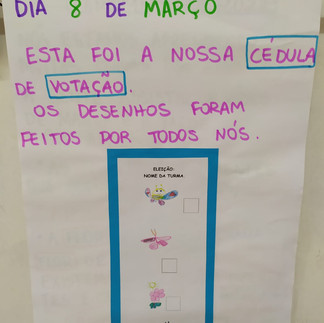 DIA 8 DE MARÇO
ESTA FOI A NOSSA CÉDULA
DE VOTAÇÃO.
OS DESENHOS FORAM
FEITOS POR TODOS NÓS.
ELEIÇÃO:
NOME DA TURMA